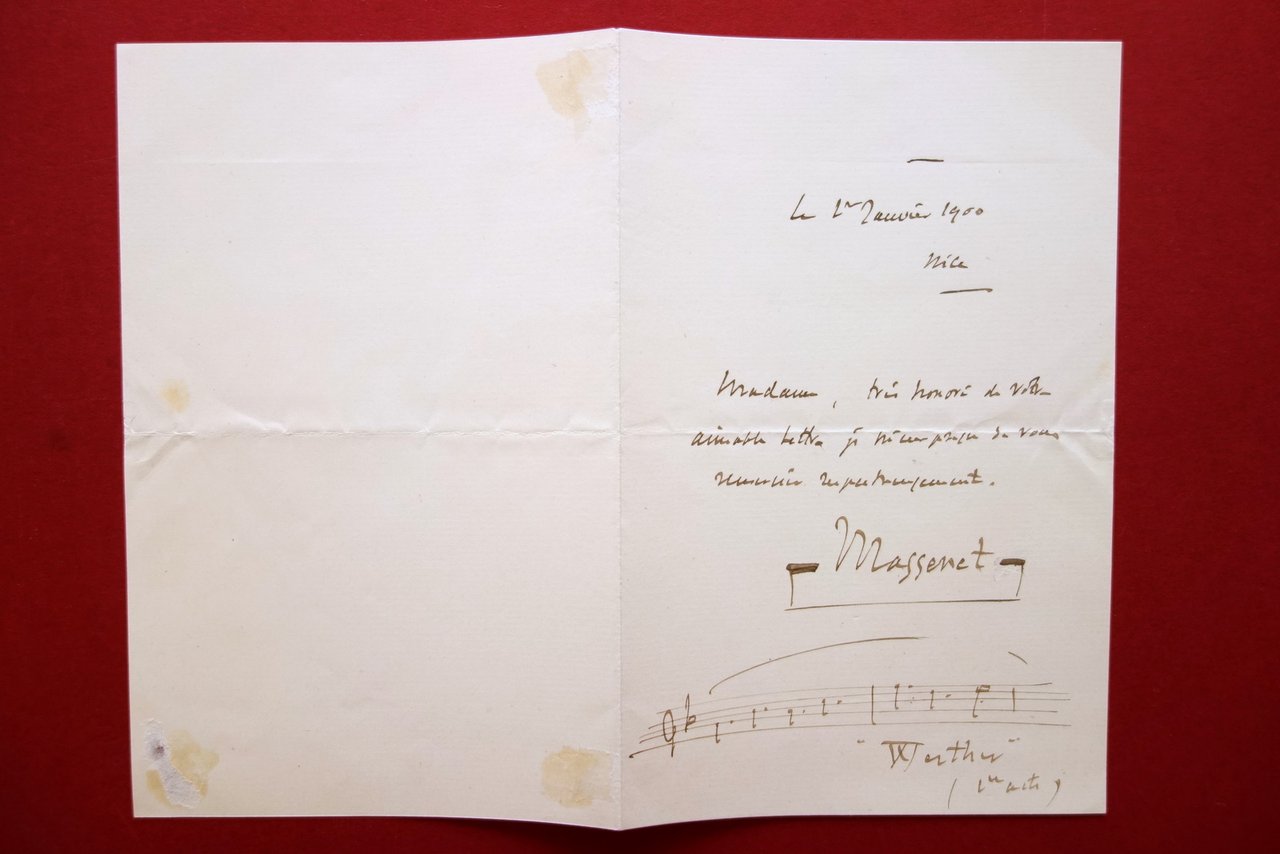 le 1er Janvier 1900
Nice
Madame, très honoré de votre
aimable lettre je m'empresse de vous
remercier respectueusement.
Massenet
"Werther"
(1er acte)